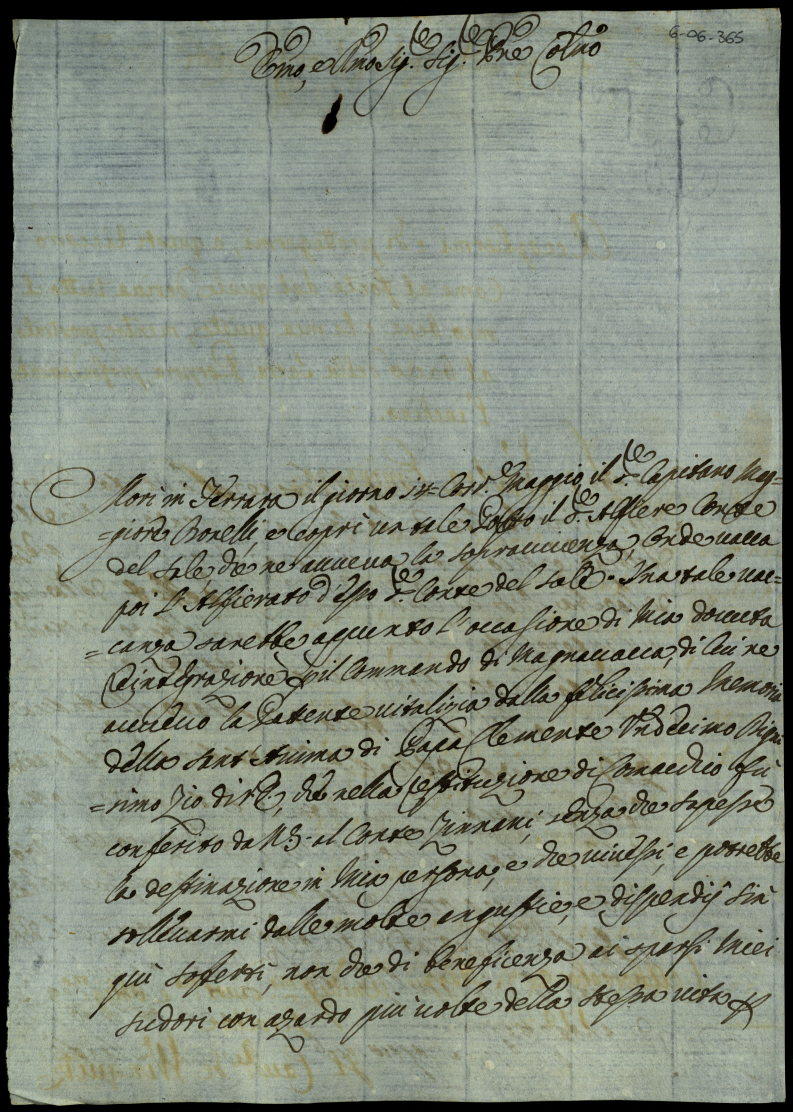 6-06-365
Emo, e Rmo Sig.re Sig.re Pne Colmo
Morì in Ferrara il giorno Corr.e Maggio, il S.r Capitano Mag-
-giore Bonelli, e coprì un tale Posto il S.r Alfiere Conte
del Sale che ne aueua la soprauiuenza, onde uaca
poi l'Alfierato d'esso S.r Conte del Sale. Una tale ua-
=canza sarebbe appunto l'occasione di mia douuta
Reintegrazione p il Commando di Magnauacca, di cui ne
aueuo la Patente uitalizia dalla felicissima Memoria
della Sant'Anima di Papa Clemente Undecimo Degni
=ssimo Zio di VE, che nella restituzione di Comacchio fù
conferito da NS. al Conte Zinnani, senza che sapesse
la destinazione in mia persona, e che uiuessi, e potrebbe
solleuarmi dalle molte angustie, e dispendij sin
quì sofferti, non che di beneficenza ai sparsi miei
sudori con azardo più uolte della stessa uita